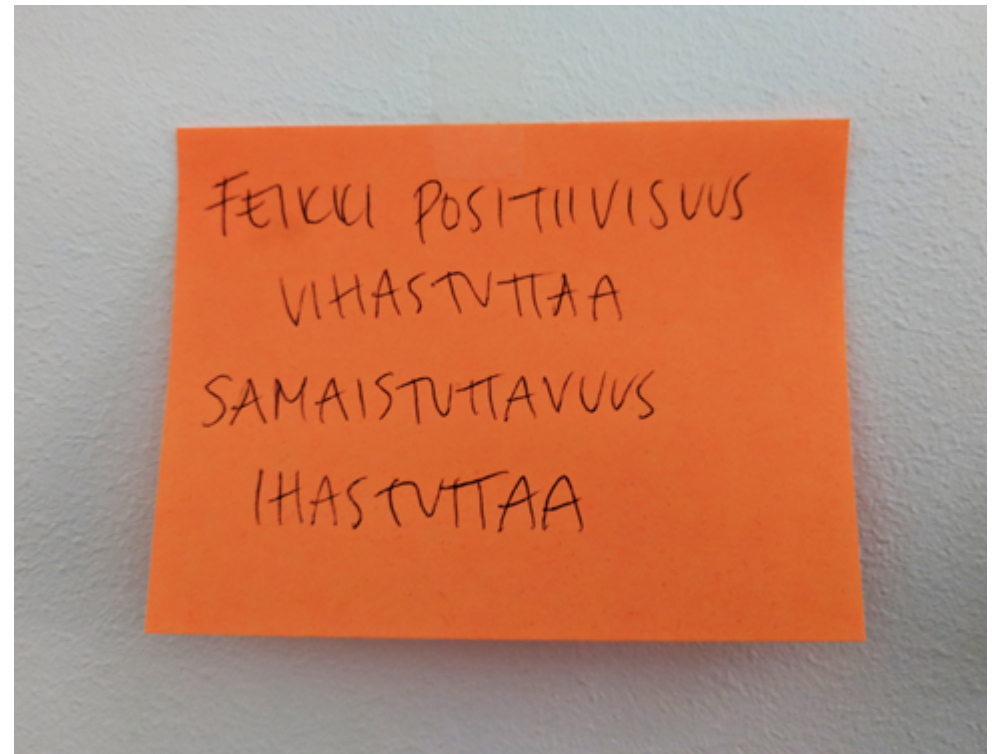 FEIKKI POSITIIVISUUS
VIHASTUTTAA
SAMAISTUTTAVUUS
IHASTUTTAA